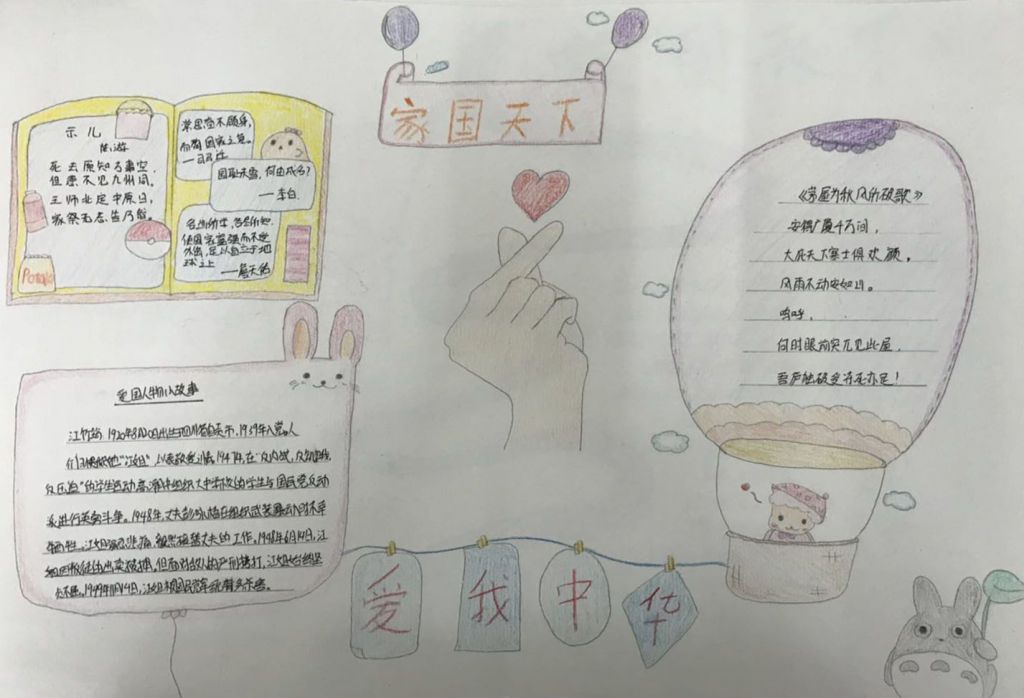 家国天下
示儿
陆游
死去原知万事空,
但悲不见九州同。
王师北定中原日,
家祭无忘告乃翁。
常思奋不顾身,
而殉国家之急。
——司马迁
国耻未雪,何由成名?
——李白
各出所学,各尽所知,
使国家富强而不受
外侮,足以自立于地
球之上
——詹天佑
Potato
《茅屋为秋风所破歌》
安得广厦千万间,
大庇天下寒士俱欢颜,
风雨不动安如山。
呜呼,
何时眼前突兀见此屋,
吾庐独破受冻死亦足!
爱国人物小故事
江竹筠,1920年8月20日出生四川省自贡市,1939年入党。人
们习惯称她"江姐",以表敬爱之情。1947年,在"反内战,反
反压迫"的学生运动高潮中组织大中学校的学生与国民党反动
派进行英勇斗争。1948年,丈夫彭咏梧在组织武装暴动时不幸
牺牲。江姐强忍悲痛,毅然接替丈夫的工作。1948年6月14日,江
姐因叛徒出卖被捕,但面对敌人的严刑拷打,江姐始终坚
贞不屈。1949年11月14日,江姐被国民党军统特务杀害。
爱我中华